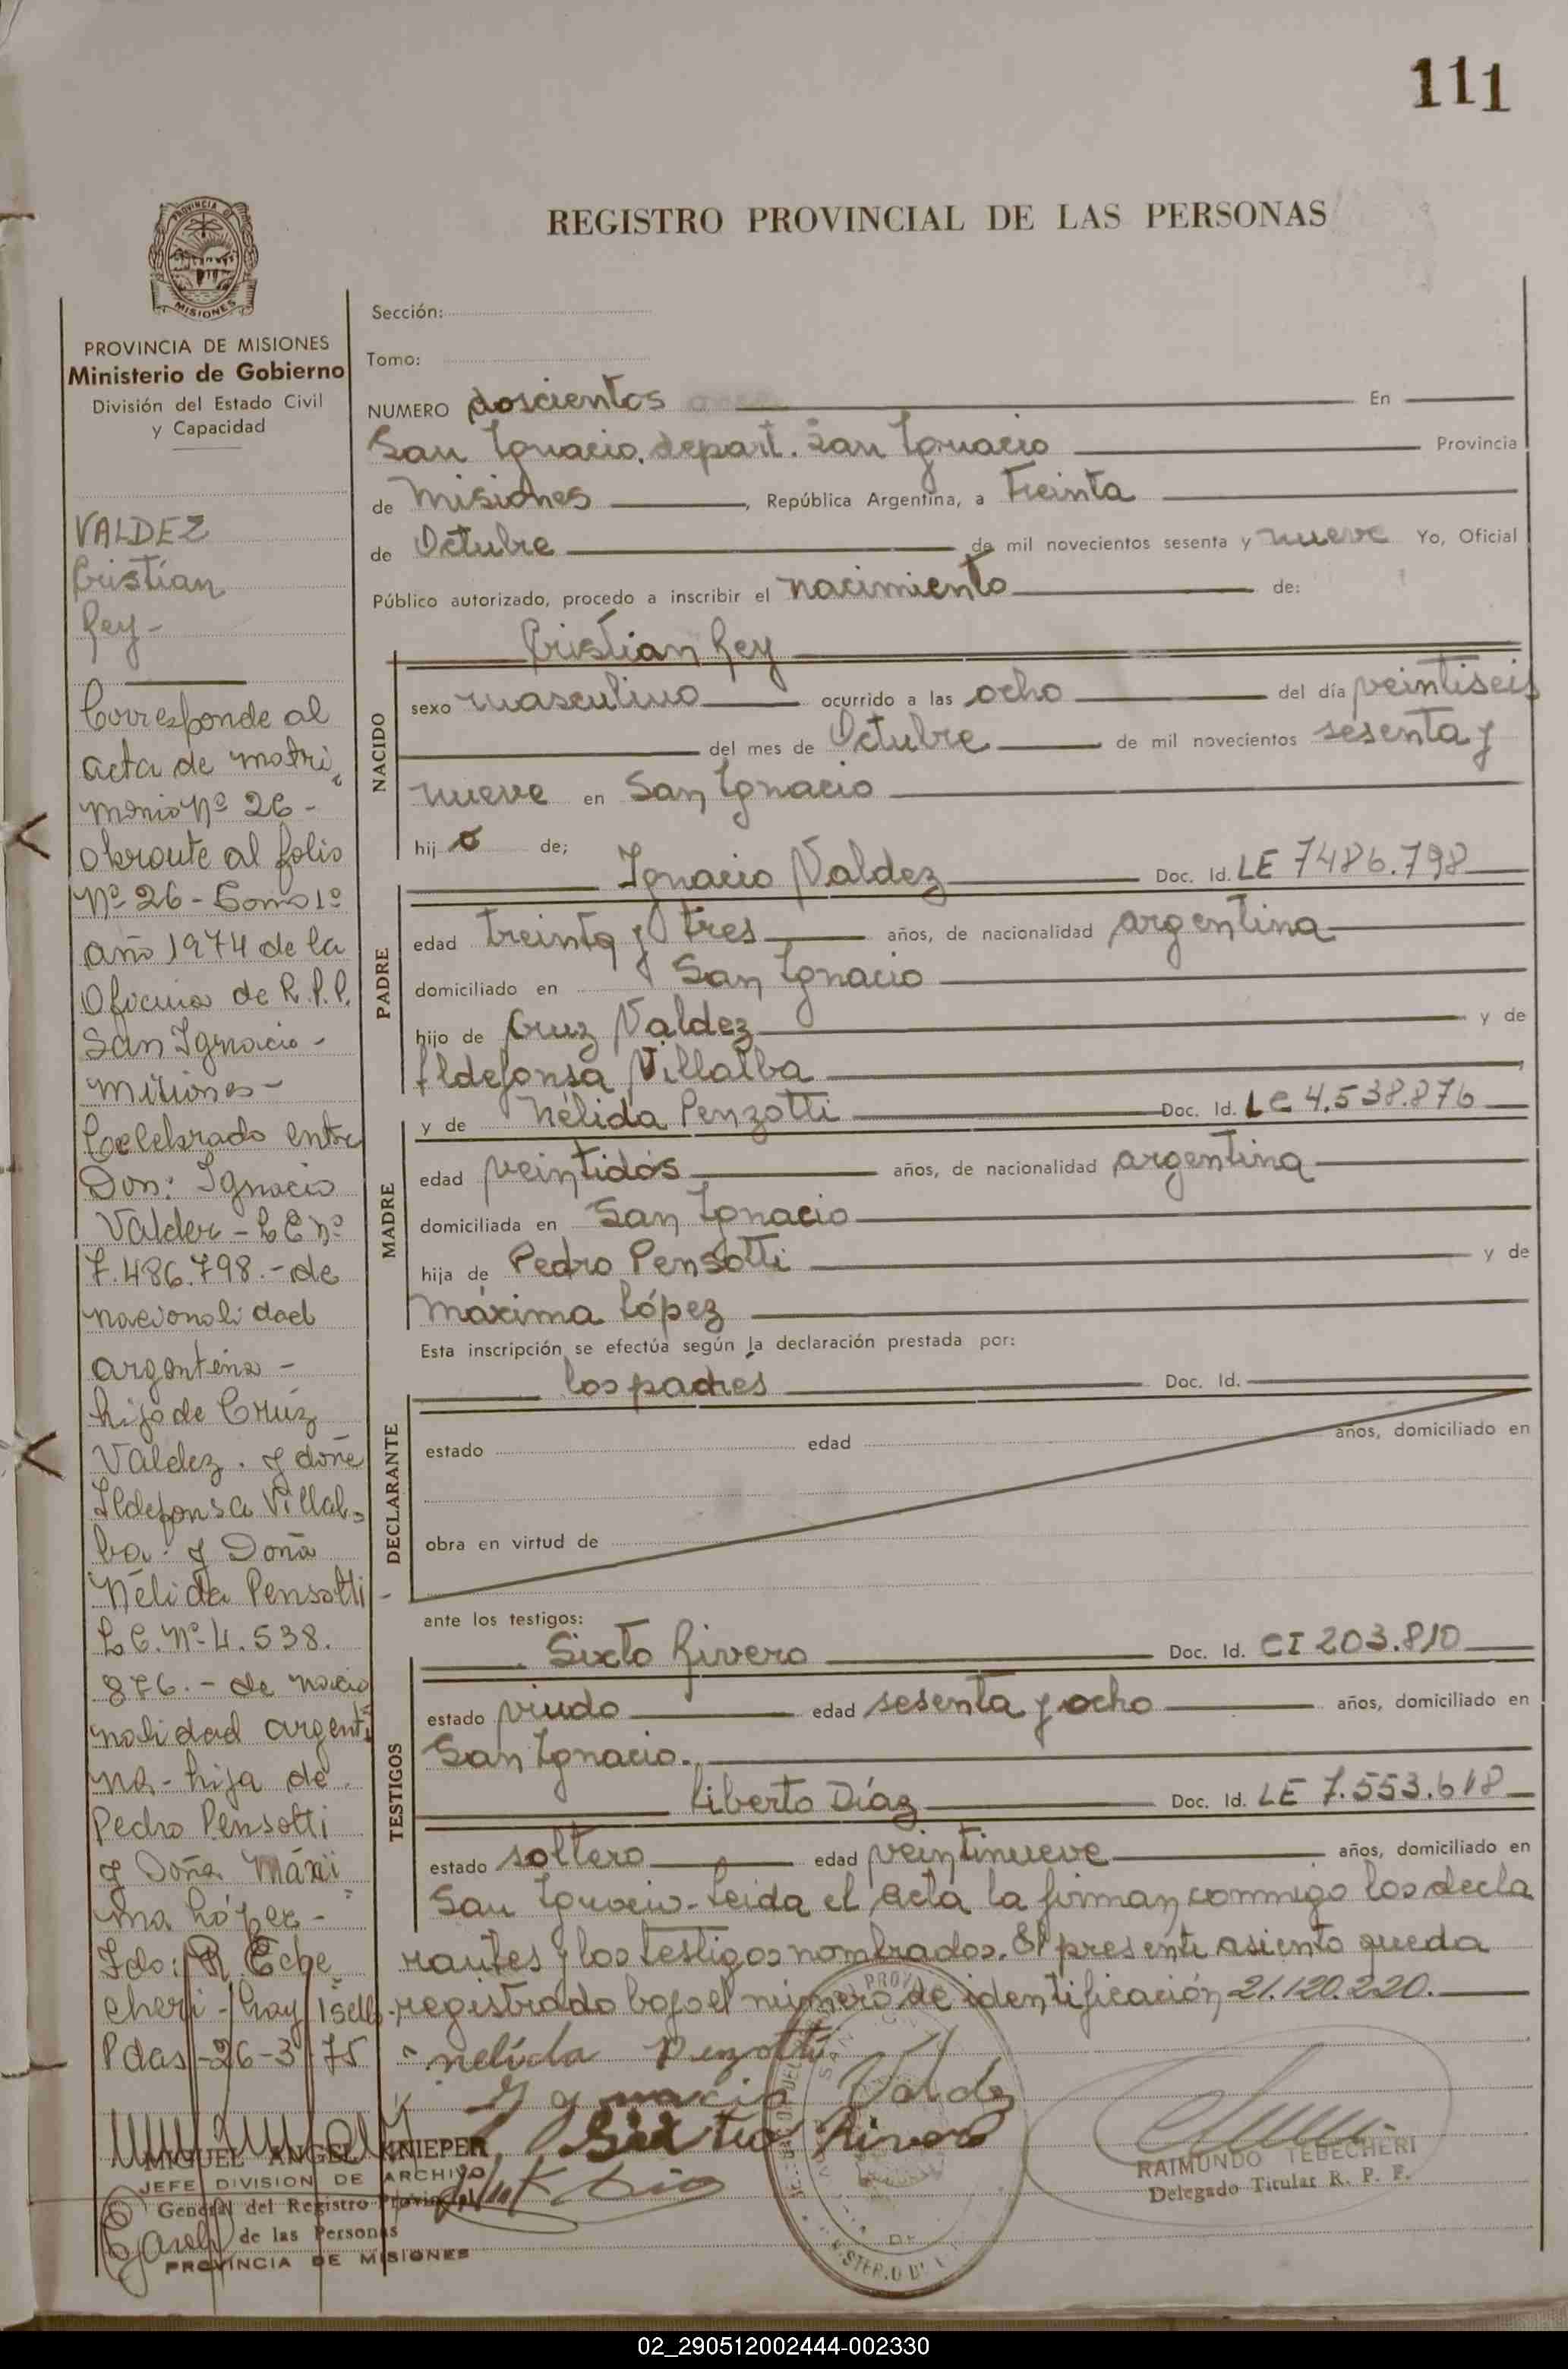 111
PROVINCIA DE
MISIONES
REGISTRO PROVINCIAL DE LAS PERSONAS
PROVINCIA DE MISIONES
Ministerio de Gobierno
División del Estado Civil
y Capacidad
VALDEZ
Cristian
Rey-
Corresponde al
acta de matri
monio Nº 26-
obrante al folio
Nº 26 - Tomo 1º
año 1974 de la
Oficina de R.P.P.
San Ignacio -
Misiones -
Celebrado entre
Don: Ignacio
Valdez - L E Nº
7.486.798.- de
nacionalidad
argentina -
hijo de Cruz
Valdez. y doña
Ildefonsa Villal-
ba- y Doña
Nélida Pensotti -
L C. Nº 4.538.
876.- de nacio
nalidad argenti
na - hija de
Pedro Pensotti
y Doña Máxi
ma López -
Fdo: R. Eche
cheri - hay 1 sello -
Pdas - 26-3-75
MIGUEL ANGEL KNIEPER
JEFE DIVISION DE ARCHIVO
General del Registro Provincial
de las Personas
PROVINCIA DE MISIONES
Sección:
Tomo:
NUMERO doscientos once En
San Ignacio, depart. San Ignacio Provincia
de Misiones, República Argentina, a Treinta
de Octubre de mil novecientos sesenta y nueve Yo, Oficial
Público autorizado, procedo a inscribir el nacimiento de:
NACIDO
Cristian Rey
sexo masculino ocurrido a las ocho del día veintiseis
del mes de Octubre de mil novecientos sesenta y
nueve en San Ignacio
hij o de;
PADRE
Ignacio Valdez Doc. Id. LE 7486.798
edad treinta y tres años, de nacionalidad argentina
domiciliado en San Ignacio
hijo de Cruz Valdez y de
Ildefonsa Villalba
MADRE
y de Nélida Penzotti Doc. Id. LC 4.538.876
edad veintidós años, de nacionalidad argentina
domiciliada en San Ignacio
hija de Pedro Pensotti y de
Máxima López
Esta inscripción se efectúa según la declaración prestada por:
DECLARANTE
los padres Doc. Id.
estado edad años, domiciliado en
obra en virtud de
ante los testigos:
TESTIGOS
Sixto Rivero Doc. Id. CI 203.810
estado viudo edad sesenta y ocho años, domiciliado en
San Ignacio.
Liberto Díaz Doc. Id. LE 7.553.618
estado soltero edad veintinueve años, domiciliado en
San Ignacio - Leida el Acta la firman conmigo los decla
rantes y los testigos nombrados. El presente asiento queda
registrado bajo el número de identificación 21.120.220.
nelida Penzotti
Ignacio Valdez
Sixto Rivero
RAIMUNDO TEBECHERI
Delegado Titular R. P. P.
02_290512002444-002330